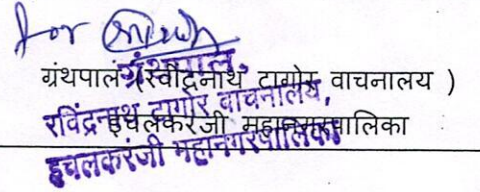 for
ग्रंथपाल (रवींद्रनाथ टागोर वाचनालय )
इचलकरंजी महानगरपालिका
ग्रंथपाल,
रविंद्रनाथ टागोर वाचनालय,
इचलकरंजी महानगरपालिका